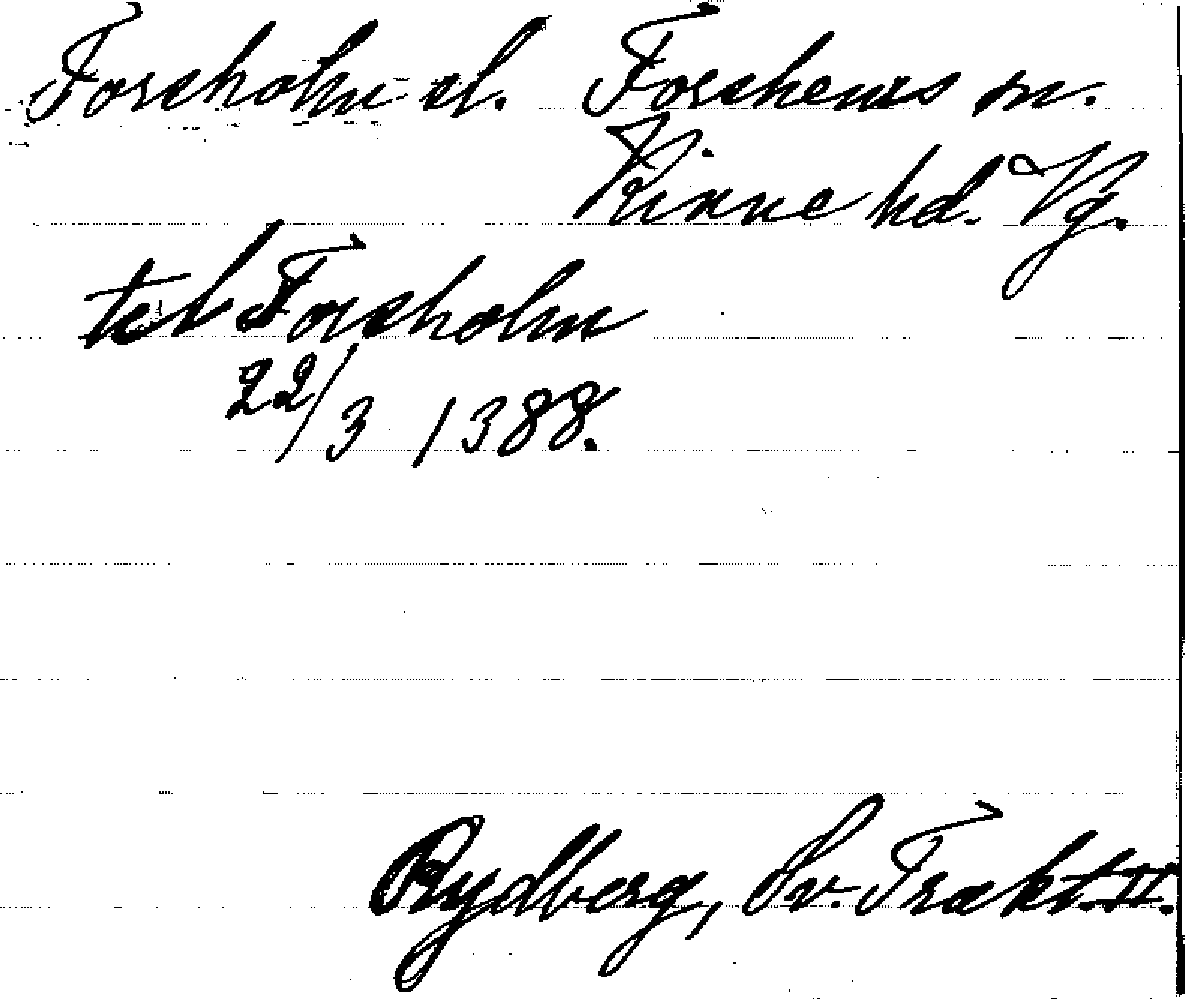 Forsholm sl. Forshems sn.
Kinne hd. Vg.
Forsholm
22/3 1388.
Rydberg, Sv. Trakt. II.